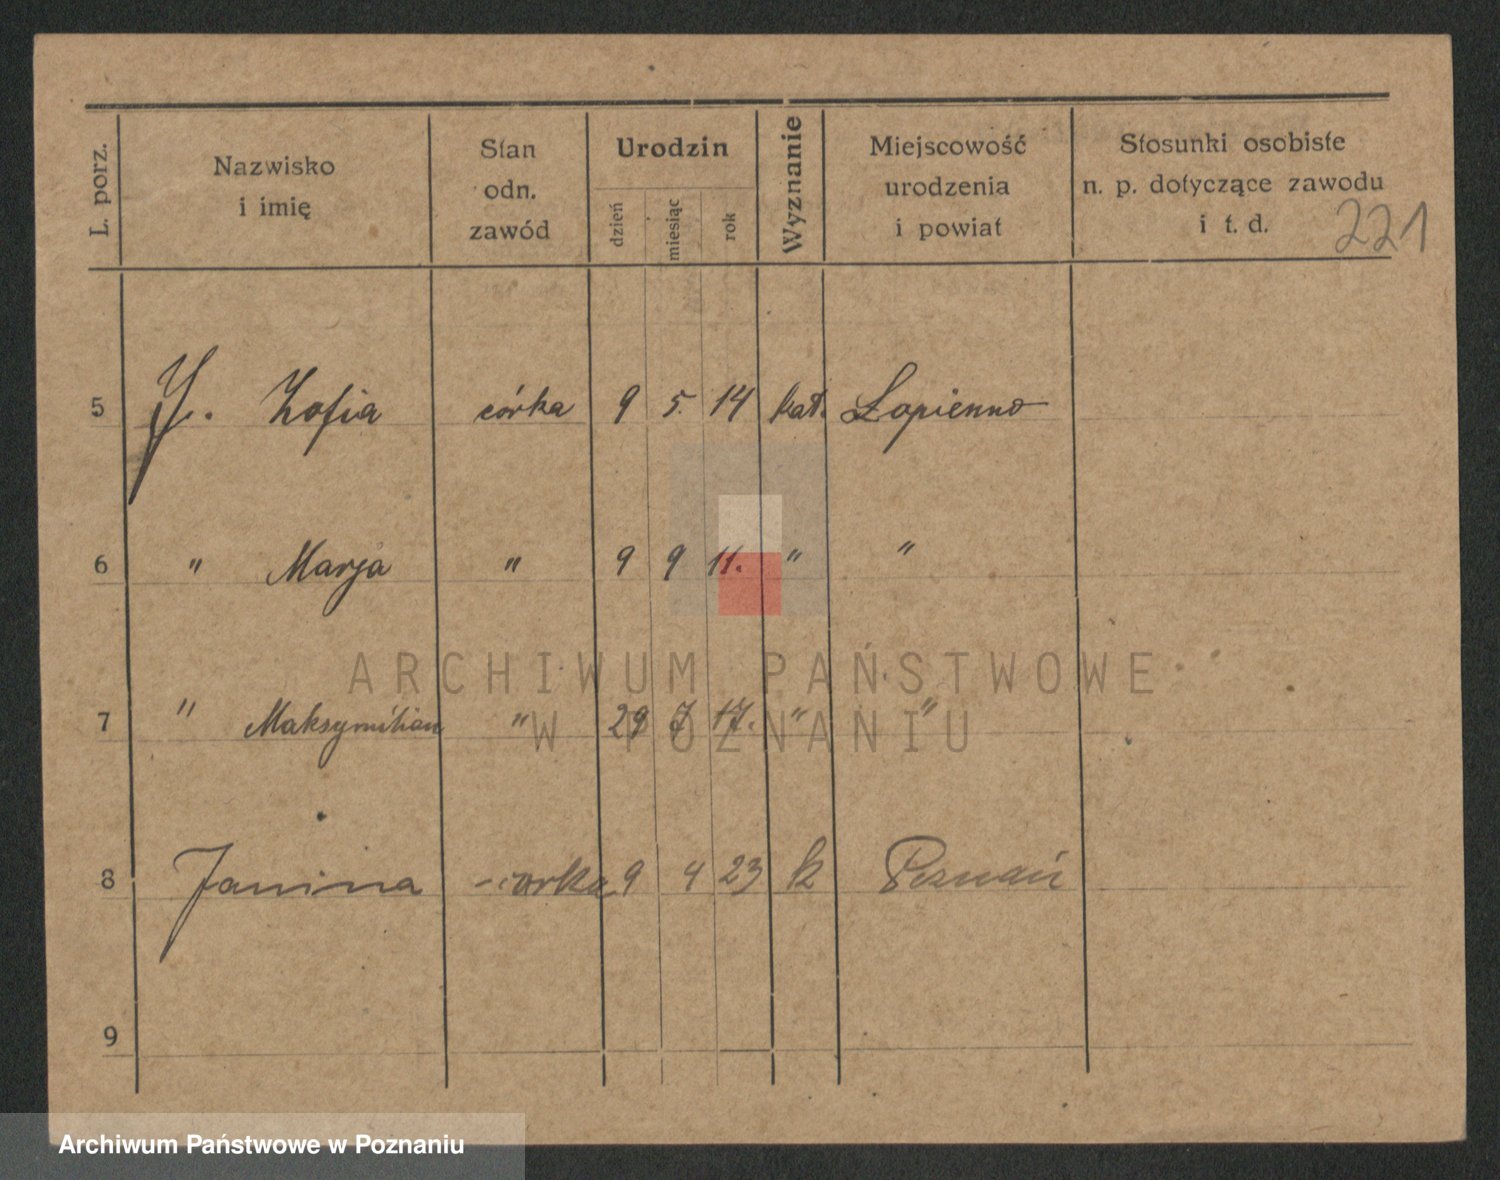 L. porz. Nazwisko i imię Stan odn. zawód Urodzin dzień miesiąc rok Wyznanie Miejscowość urodzenia i powiat Stosunki osobiste n. p. dotyczące zawodu i t. d.
221
5 J. Zofia córka 9 5. 14 kat. Łopienno
6 " Marja " 9 9 11. " "
ARCHIWUM PAŃSTWOWE
7 " Maksymilian " 29 7 17. " "
W POZNANIU
8 Janina córka 9 4 23 k Poznań
9
Archiwum Państwowe w Poznaniu